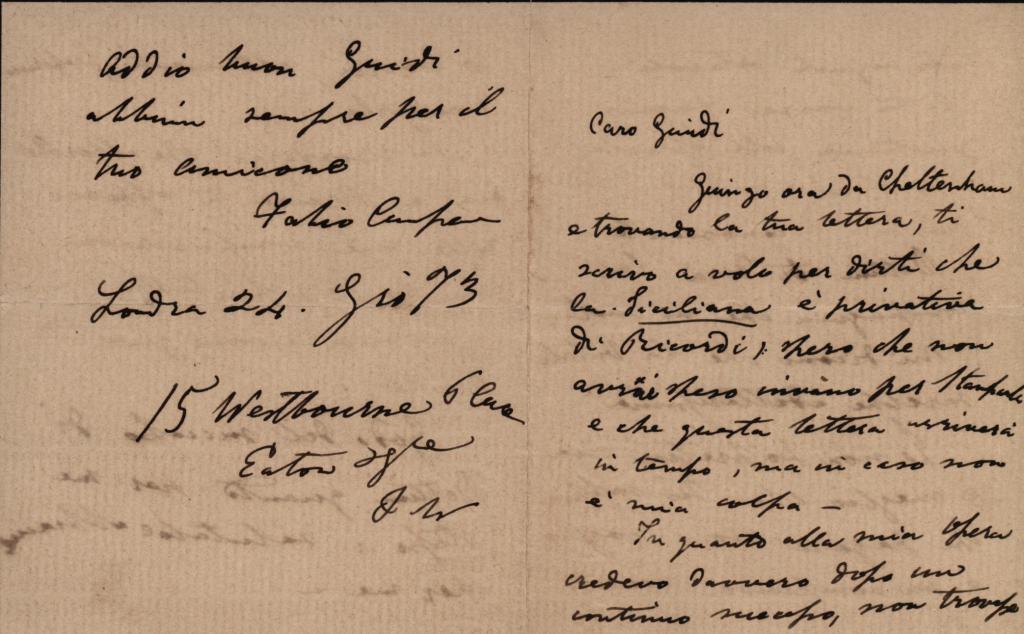 Caro Guidi
Giungo ora da Cheltenham
e trovando la tua lettera, ti
scrivo a volo per dirti che
la Siciliana è privativa
di Ricordi; spero che non
avrai speso invano per stamparla
e che questa lettera arriverà
in tempo, ma in caso non
è mia colpa —
In quanto alla mia Opera
credevo davvero dopo un
continuo successo, non
Addio buon Guidi
abbimi sempre per il
tuo amicone
Fabio Campana
Londra 24. Gio 73
15 Westbourne Place
Eaton Sqre